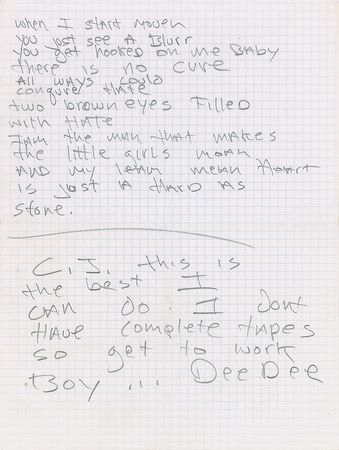 when I start moven
you jost see A Blurr
you get hooked on me BABY
there is no cure
All ways could
conqure HATE
two brown eyes Filled
with HATE
I Am the man tHAt mAkes
the little girls moan
AND my lean mean HeArt
is jost A HArd As
stone.
C.J. this is
the best I
CAn do. I dont
HAve complete tApes
so get to work
Boy ... DeeDee